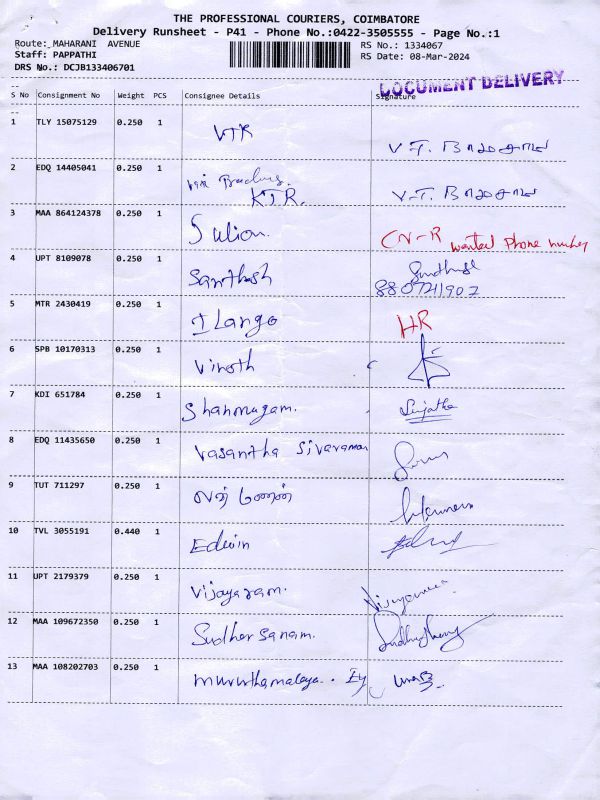 THE PROFESSIONAL COURIERS, COIMBATORE
Delivery Runsheet - P41 - Phone No.:0422-3505555 - Page No.:1
Route: MAHARANI AVENUE
RS No.: 1334067
Staff: PAPPATHI
RS Date: 08-Mar-2024
DRS No.: DCJB133406701
DOCUMENT DELIVERY
S No Consignment No Weight PCS Consignee Details Signature
1 TLY 15075129 0.250 1 VTR V.T.
2 EDQ 14405041 0.250 1 KTR. V.T.
3 MAA 864124378 0.250 1 Sulion. CN-R wanted Phone number
4 UPT 8109078 0.250 1 Santhosh
8807211902
5 MTR 2430419 0.250 1 ILango HR
6 SPB 10170313 0.250 1 Vinoth
7 KDI 651784 0.250 1 Shanmugam. Sujatha
8 EDQ 11435650 0.250 1 Vasantha Sivaraman
9 TUT 711297 0.250 1
10 TVL 3055191 0.440 1 Edwin
11 UPT 2179379 0.250 1 Vijayaram.
12 MAA 109672350 0.250 1 Sudharsanam.
13 MAA 108202703 0.250 1 Muruthamalaya.